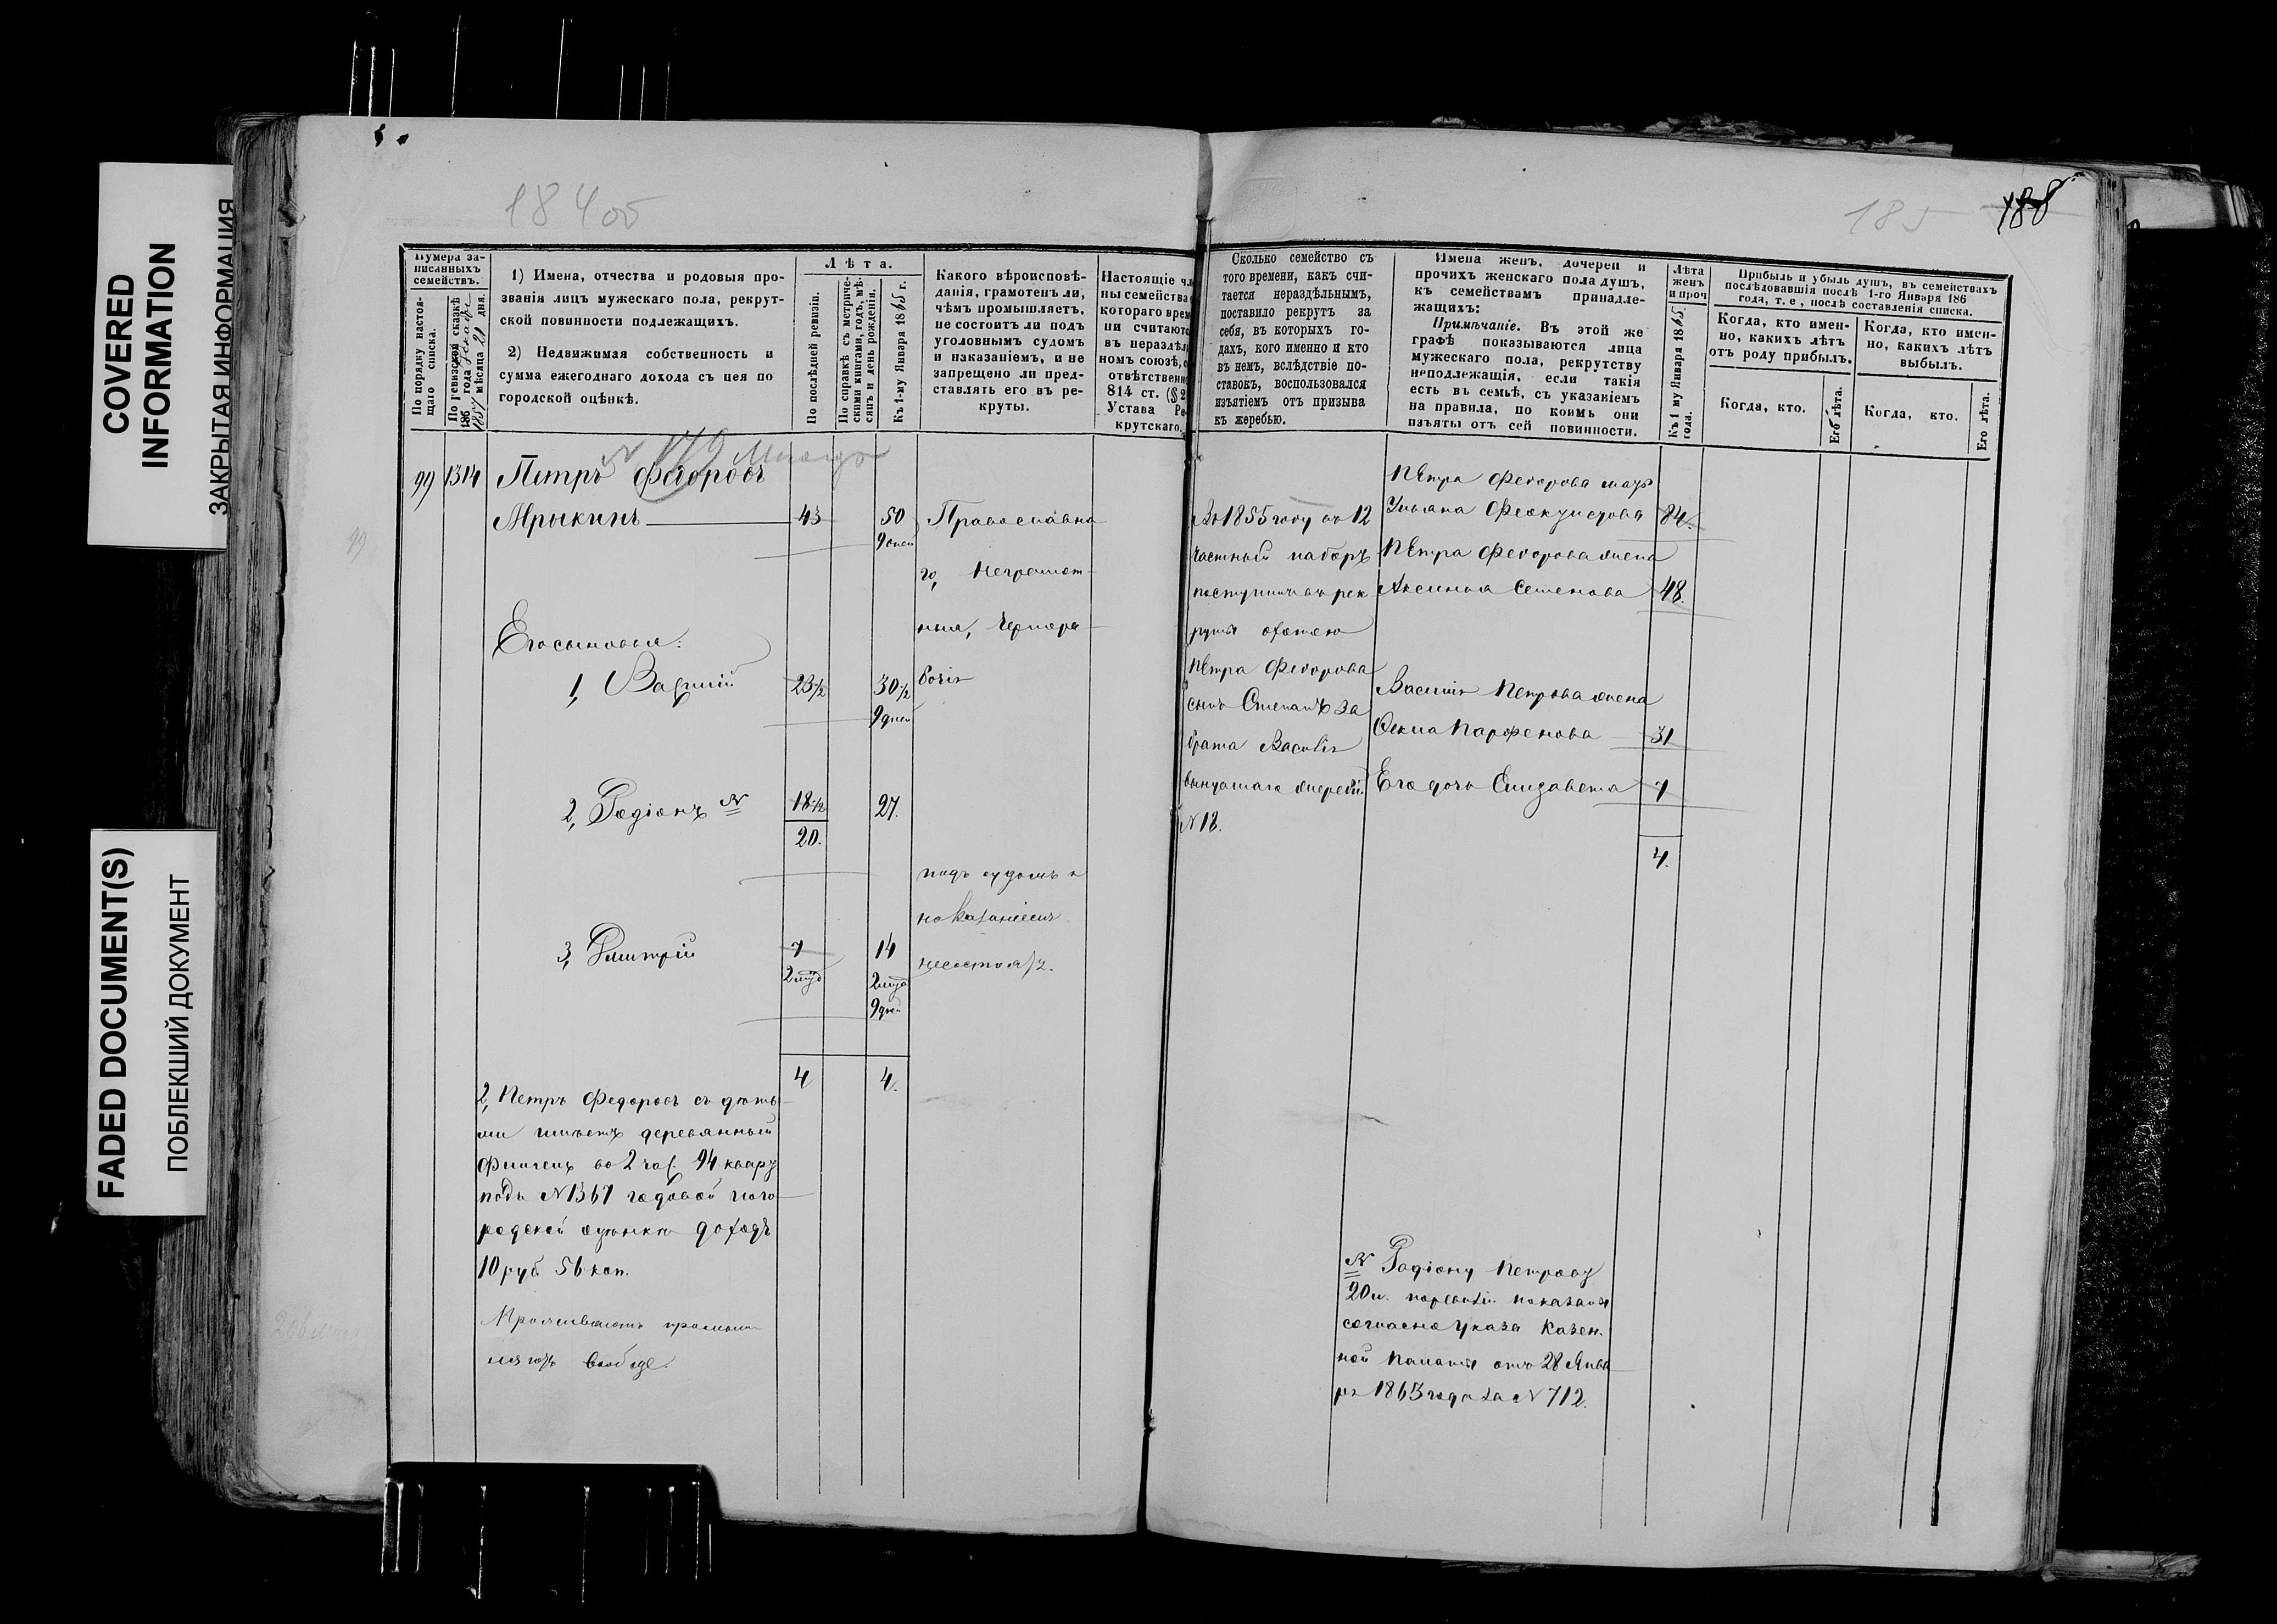 COVERED
INFORMATION
ЗАКРЫТАЯ ИНФОРМАЦИЯ
FADED DOCUMENT(S)
ПОБЛЕКШИЙ ДОКУМЕНТ
184об
185
188
Нумера за-
писанныхъ
семействъ.
По порядку настоя-
щаго списка.
По ревизской сказкѣ
186 года
1857 мѣсяца 21 дня.
1) Имена, отчества и родовыя про-
званія лицъ мужескаго пола, рекрут-
ской повинности подлежащихъ.
2) Недвижимая собственность и
сумма ежегоднаго дохода съ нея по
городской оцѣнкѣ.
Лѣта.
По послѣдней ревизіи.
По справкѣ съ метриче-
скими книгами, годъ, мѣ-
сяцъ и день рожденія.
Къ 1-му Января 1865 г.
Какого вѣроисповѣ-
данія, грамотенъ ли,
чѣмъ промышляетъ,
не состоитъ ли подъ
уголовнымъ судомъ
и наказаніемъ, и не
запрещено ли пред-
ставлять его въ ре-
круты.
Настоящіе чл
ны семейства
котораго врем
ни считаютс
въ нераздѣл
номъ союзѣ, с
отвѣтственн
814 ст. (§ 2
Устава Ре-
крутскаго.
Сколько семейство съ
того времени, какъ счи-
тается нераздѣльнымъ,
поставило рекрутъ за
себя, въ которыхъ го-
дахъ, кого именно и кто
въ немъ, вслѣдствіе по-
ставокъ, воспользовался
изъятіемъ отъ призыва
къ жеребью.
Имена женъ, дочерей и
прочихъ женскаго пола душъ,
къ семействамъ принадле-
жащихъ:
Примѣчаніе. Въ этой же
графѣ показываются лица
мужескаго пола, рекрутству
неподлежащія, если такія
есть въ семьѣ, съ указаніемъ
на правила, по коимъ они
изъяты отъ сей повинности.
Лѣта
женъ
и проч
Къ 1 му Января 1865
года.
Прибыль и убыль душъ, въ семействахъ
послѣдовавшія послѣ 1-го Января 186
года, т. е, послѣ составленія списка.
Когда, кто имен-
но, какихъ лѣтъ
отъ роду прибылъ.
Когда, кто.
Его лѣта.
Когда, кто имен-
но, какихъ лѣтъ
выбылъ.
Когда, кто.
Его лѣта.
99 1314 Петръ Федоровъ
43 50
9 дней
Православна
го, неграмот-
ныя, чернора-
бочія
Его сыновья:
1, Василій 23½ 30½
9 дней
2, Родіонъ N 18½ 27.
20.
подъ судомъ и
наказаніемъ
несостоятъ.
3, Дмитрій 7 14
9 дней
4 4.
2, Петръ Федоровъ съ дѣть-
ми имѣетъ деревянный
флигель во 2 час. 94 кварт
подъ N 1367 годовой по го
родской оцѣнки доходъ
10 руб. 56 коп.
Проживаютъ
99
Въ 1855 году въ 12
частный наборъ
поступилъ въ рек
руты охотою
Петра Федорова
сынъ Степанъ за
брата Василія
вынувшаго жеребій
N 18.
Петра Федорова мать
Ульяна Феоктистова 84.
Петра Федорова жена
Аксинья Семенова 48.
Василія Петрова жена
Парфенова 31
Его дочь Елизавета 7
4.
N Родіону Петрову
20 л. по ревизіи показаны
согласно указа Казен-
ной Палаты отъ 28 Янва
ря 1863 года за N 712.